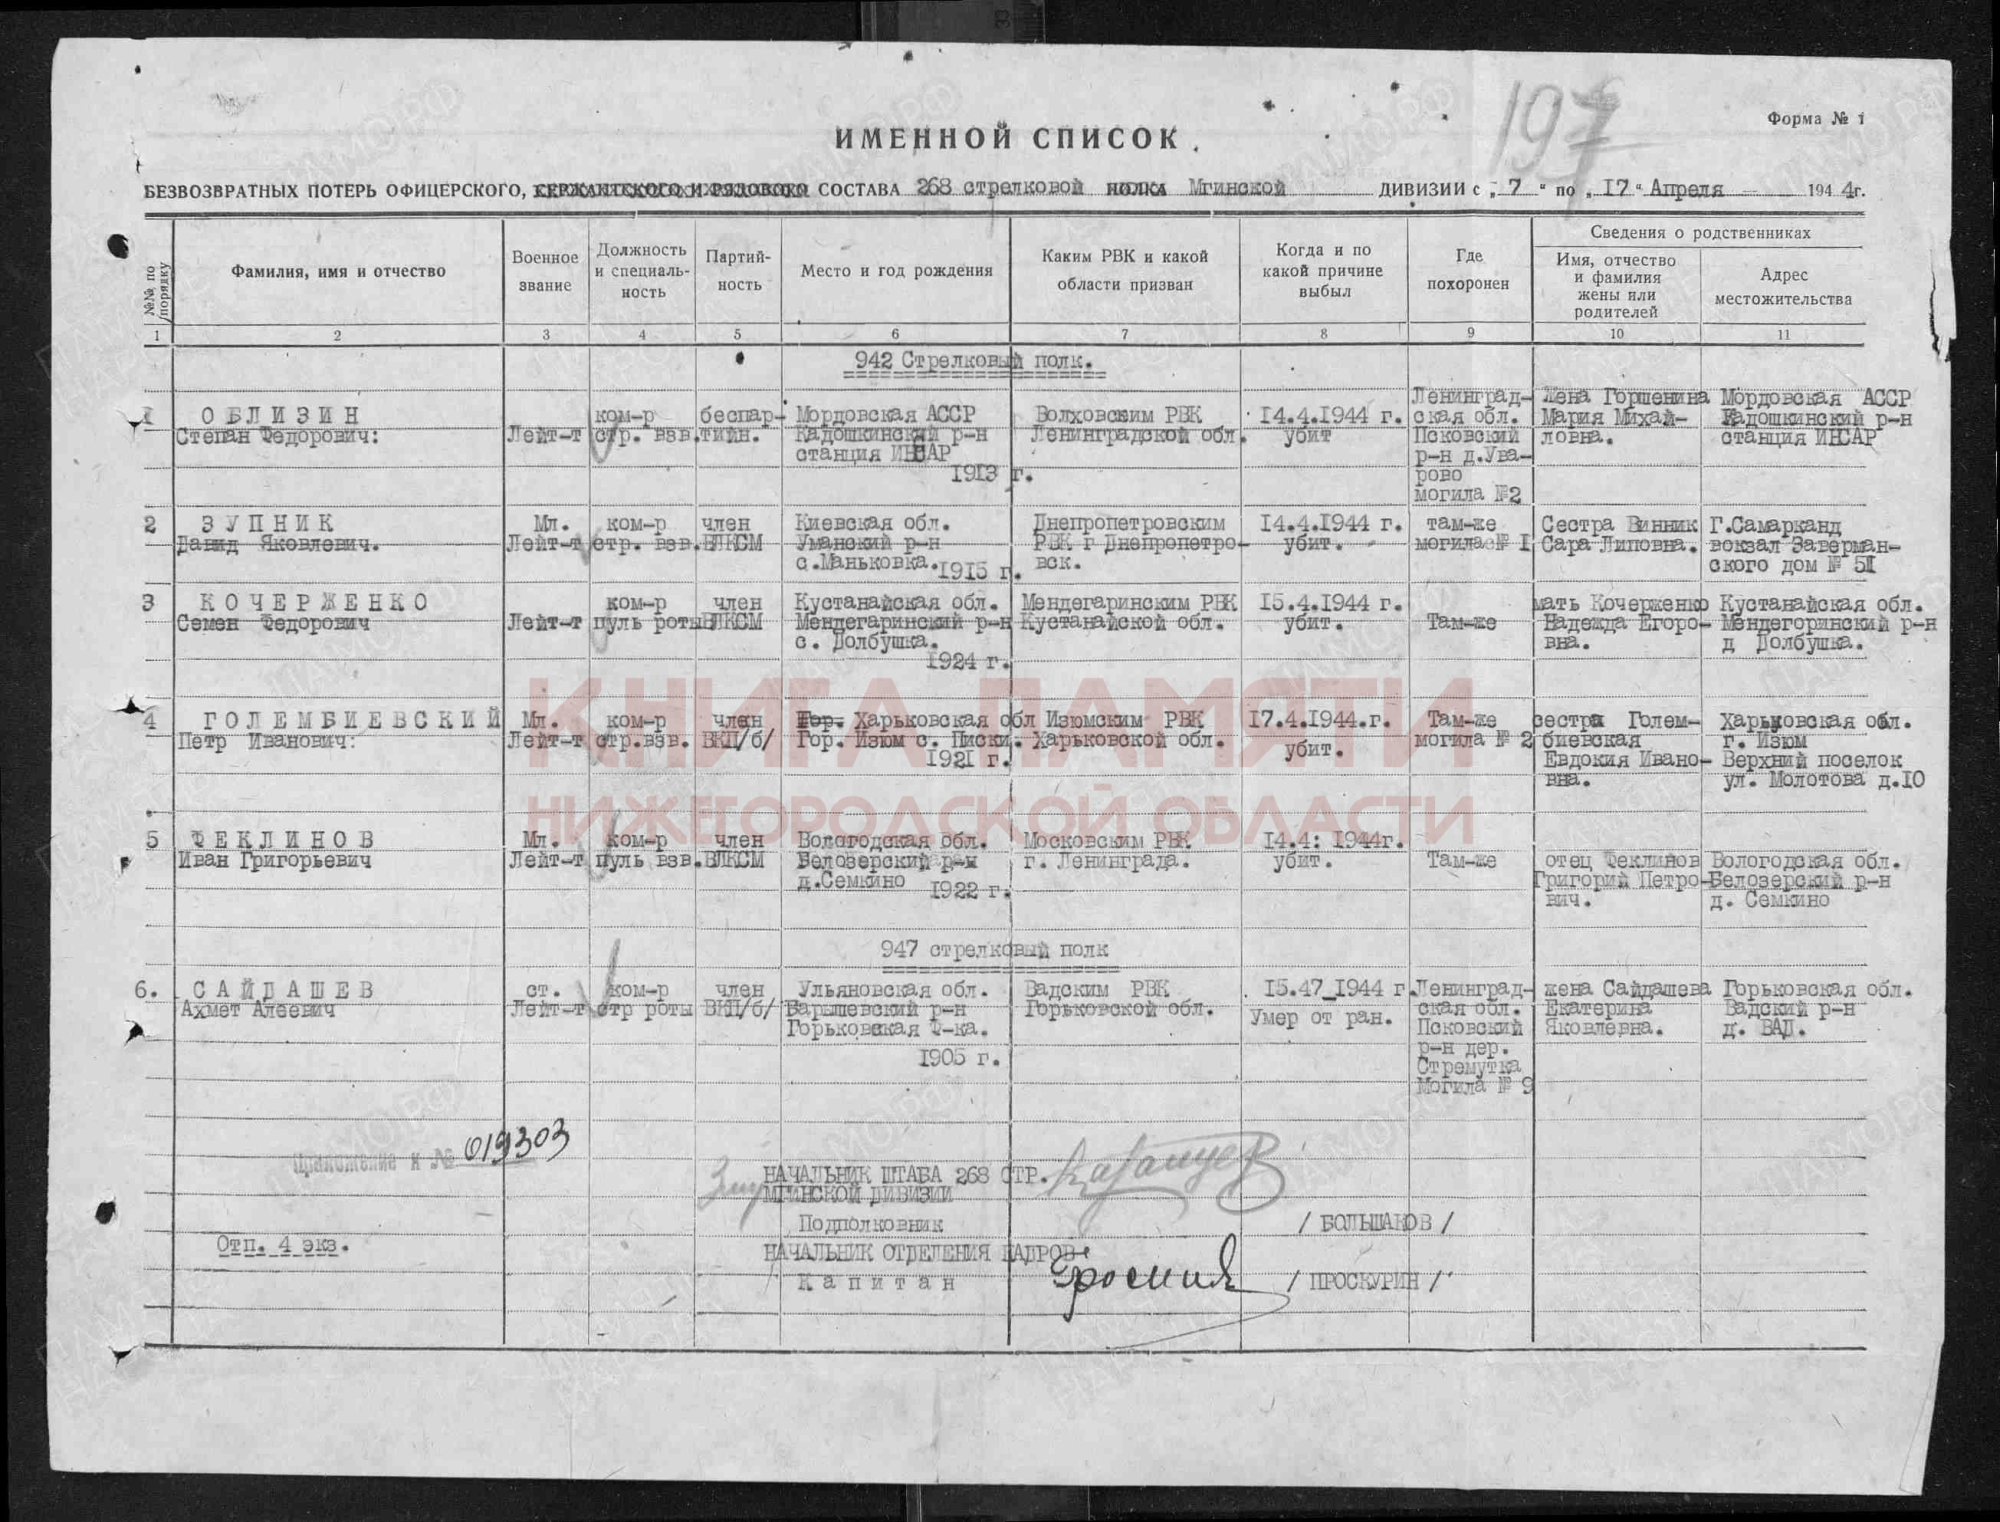 197
Форма № 1
ИМЕННОЙ СПИСОК
БЕЗВОЗВРАТНЫХ ПОТЕРЬ ОФИЦЕРСКОГО, СЕРЖАНТСКОГО И РЯДОВОГО СОСТАВА 268 стрелковой полка Мгинской ДИВИЗИИ с „ 7 " по „ 17 " Апреля 1944г.
№№ по порядку
Фамилия, имя и отчество
Военное звание
Должность и специаль- ность
Партий- ность
Место и год рождения
Каким РВК и какой области призван
Когда и по какой причине выбыл
Где похоронен
Сведения о родственниках
Имя, отчество и фамилия жены или родителей
Адрес местожительства
1 2 3 4 5 6 7 8 9 10 11
942 Стрелковый полк.
1
ОБЛИЗИН
Степан Федорович:
Лейт-т
ком-р
стр. взв.
беспар-
тийн.
Мордовская АССР
Кадошкинский р-н
станция ИНСАР
1913 г.
Волховским РВК
Ленинградской обл.
14.4.1944 г.
убит
Ленинград-
ская обл.
Псковский
р-н д.Ува-
рово
могила №2
Жена Горшенина
Мария Михай-
ловна.
Мордовская АССР
Кадошкинский р-н
станция ИНСАР
2
ЗУПНИК
Давид Яковлевич.
Мл.
Лейт-т
ком-р
стр. взв.
член
ВЛКСМ
Киевская обл.
Уманский р-н
с.Маньковка.
1915 г.
Днепропетровским
РВК г Днепропетро-
вск.
14.4.1944 г.
убит.
там-же
могила № 1
Сестра Винник
Сара Липовна.
Г.Самарканд
вокзал Заверман-
ского дом № 51
3
КОЧЕРЖЕНКО
Семен Федорович
Лейт-т
ком-р
пуль роты
член
ВЛКСМ
Кустанайская обл.
Мендегаринский р-н
с. Долбушка.
1924 г.
Мендегаринским РВК
Кустанайской обл.
15.4.1944 г.
убит.
Там-же
мать Кочерженко
Надежда Егоро-
вна.
Кустанайская обл.
Мендегоринский р-н
д Долбушка.
4
ГОЛЕМБИЕВСКИЙ
Петр Иванович:
Мл.
Лейт-т
ком-р
стр.взв.
член
ВКП/б/
Гор. Харьковская обл
Гор. Изюм с. Писки.
1921 г.
Изюмским РВК
Харьковской обл.
17.4.1944.г.
убит.
Там-же
могила № 2
сестра Голем-
биевская
Евдокия Ивано-
вна.
Харьковская обл.
г. Изюм
Верхний поселок
ул. Молотова д.10
5
ФЕКЛИНОВ
Иван Григорьевич
Мл.
Лейт-т
ком-р
пуль взв.
член
ВЛКСМ
Вологодская обл.
Белозерский р-н
д.Семкино
1922 г.
Московским РВК
г. Ленинграда.
14.4: 1944г.
убит.
Там-же
отец Феклинов
Григорий Петро-
вич.
Вологодская обл.
Белозерский р-н
д. Семкино
947 стрелковый полк
6.
САЙДАШЕВ
Ахмет Алеевич
ст.
Лейт-т
ком-р
стр роты
член
ВКП/б/
Ульяновская обл.
Барышевский р-н
Горьковская Ф-ка.
1905 г.
Вадским РВК
Горьковской обл.
15.47_1944 г.
Умер от ран.
Ленинград-
ская обл.
Псковский
р-н дер.
Стремутка
Могила № 9
жена Сайдашева
Екатерина
Яковлевна.
Горьковская обл.
Вадский р-н
д. ВАД.
КНИГА ПАМЯТИ
НИЖЕГОРОДСКОЙ ОБЛАСТИ
Приложение к № 019303
НАЧАЛЬНИК ШТАБА 268 СТР.
МГИНСКОЙ ДИВИЗИИ
Подполковник
/ БОЛЬШАКОВ /
Отп. 4 экз.
НАЧАЛЬНИК ОТДЕЛЕНИЯ КАДРОВ
Капитан
/ ПРОСКУРИН /